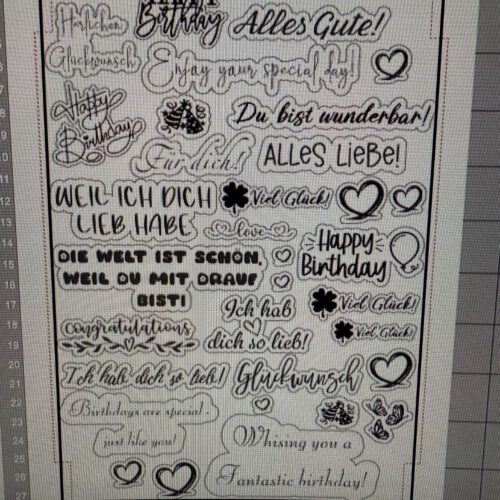 Herlichen
HAPPY
Birthday
Alles Gute!
Glückwunsch
Enjoy your special day!
Happy
Birthday
Du bist wunderbar!
Für dich!
ALLES LIEBE!
WEIL ICH DICH
LIEB HABE
Viel Glück!
love
DIE WELT IST SCHÖN,
WEIL DU MIT DRAUF
BIST!
Happy
Birthday
Ich hab
dich so lieb!
Viel Glück!
Viel Glück!
congratulations
Ich hab dich so lieb!
Glückwunsch
Birthdays are special -
just like you!
Whising you a
Fantastic birthday!
11
12
13
14
15
16
17
18
19
20
21
22
23
24
25
26
27